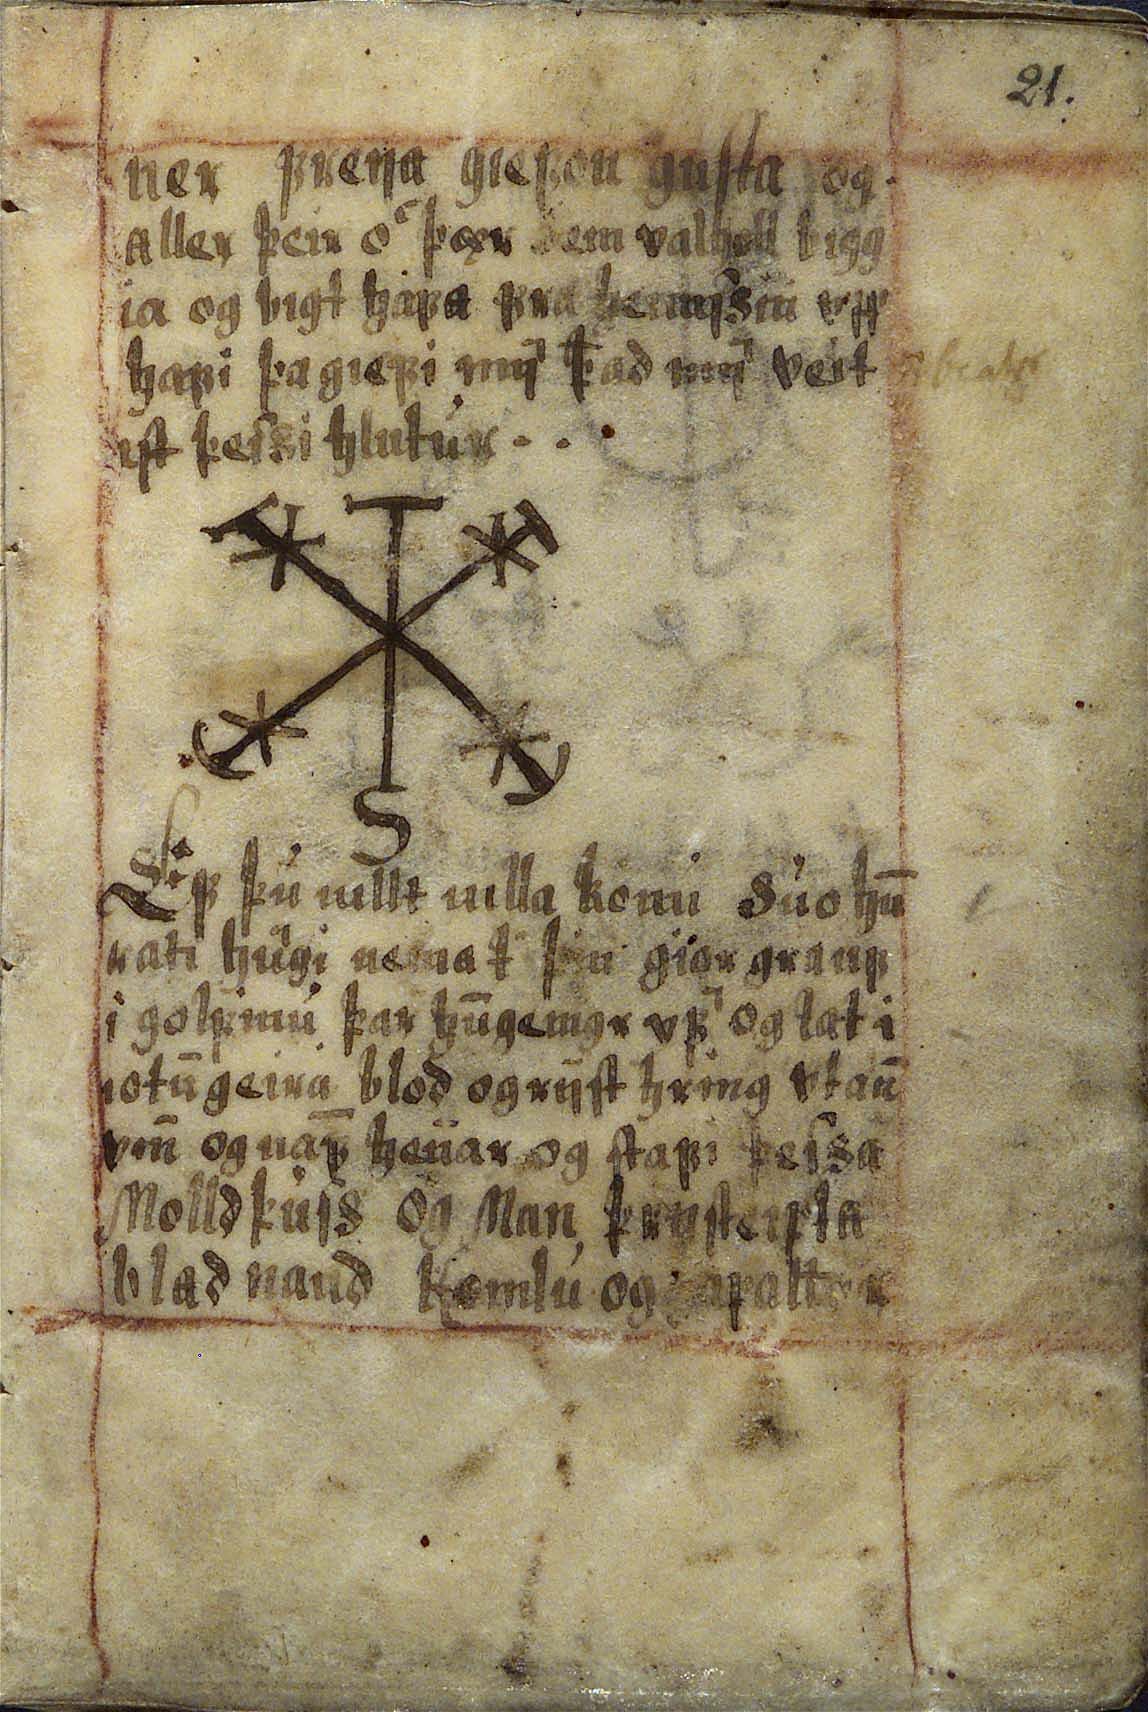 21.
ner freyia giefion gusta og
aller þeir oc þær sem valholl bigg
ia og bigt hafa fra heimsins upp
hafi þa giefi mier það mier veit
ist þessi hlutur . . .
S
Ef þu villt villa konu suo hun
rati hugi nema til þin gior grauf
i golfinu þar hun geingr yfir og lat i
iotun geira blod og ryst hring utan
um og nafn hennar og stafi þessa
Molldþuss og Man þrysteipta
blad naud komlu og gapalldr